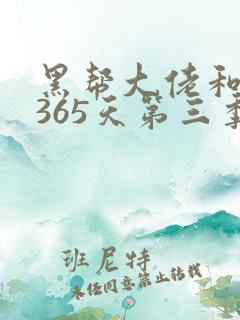 黑帮大佬和
365天第三季
班尼特
未经同意禁止转载